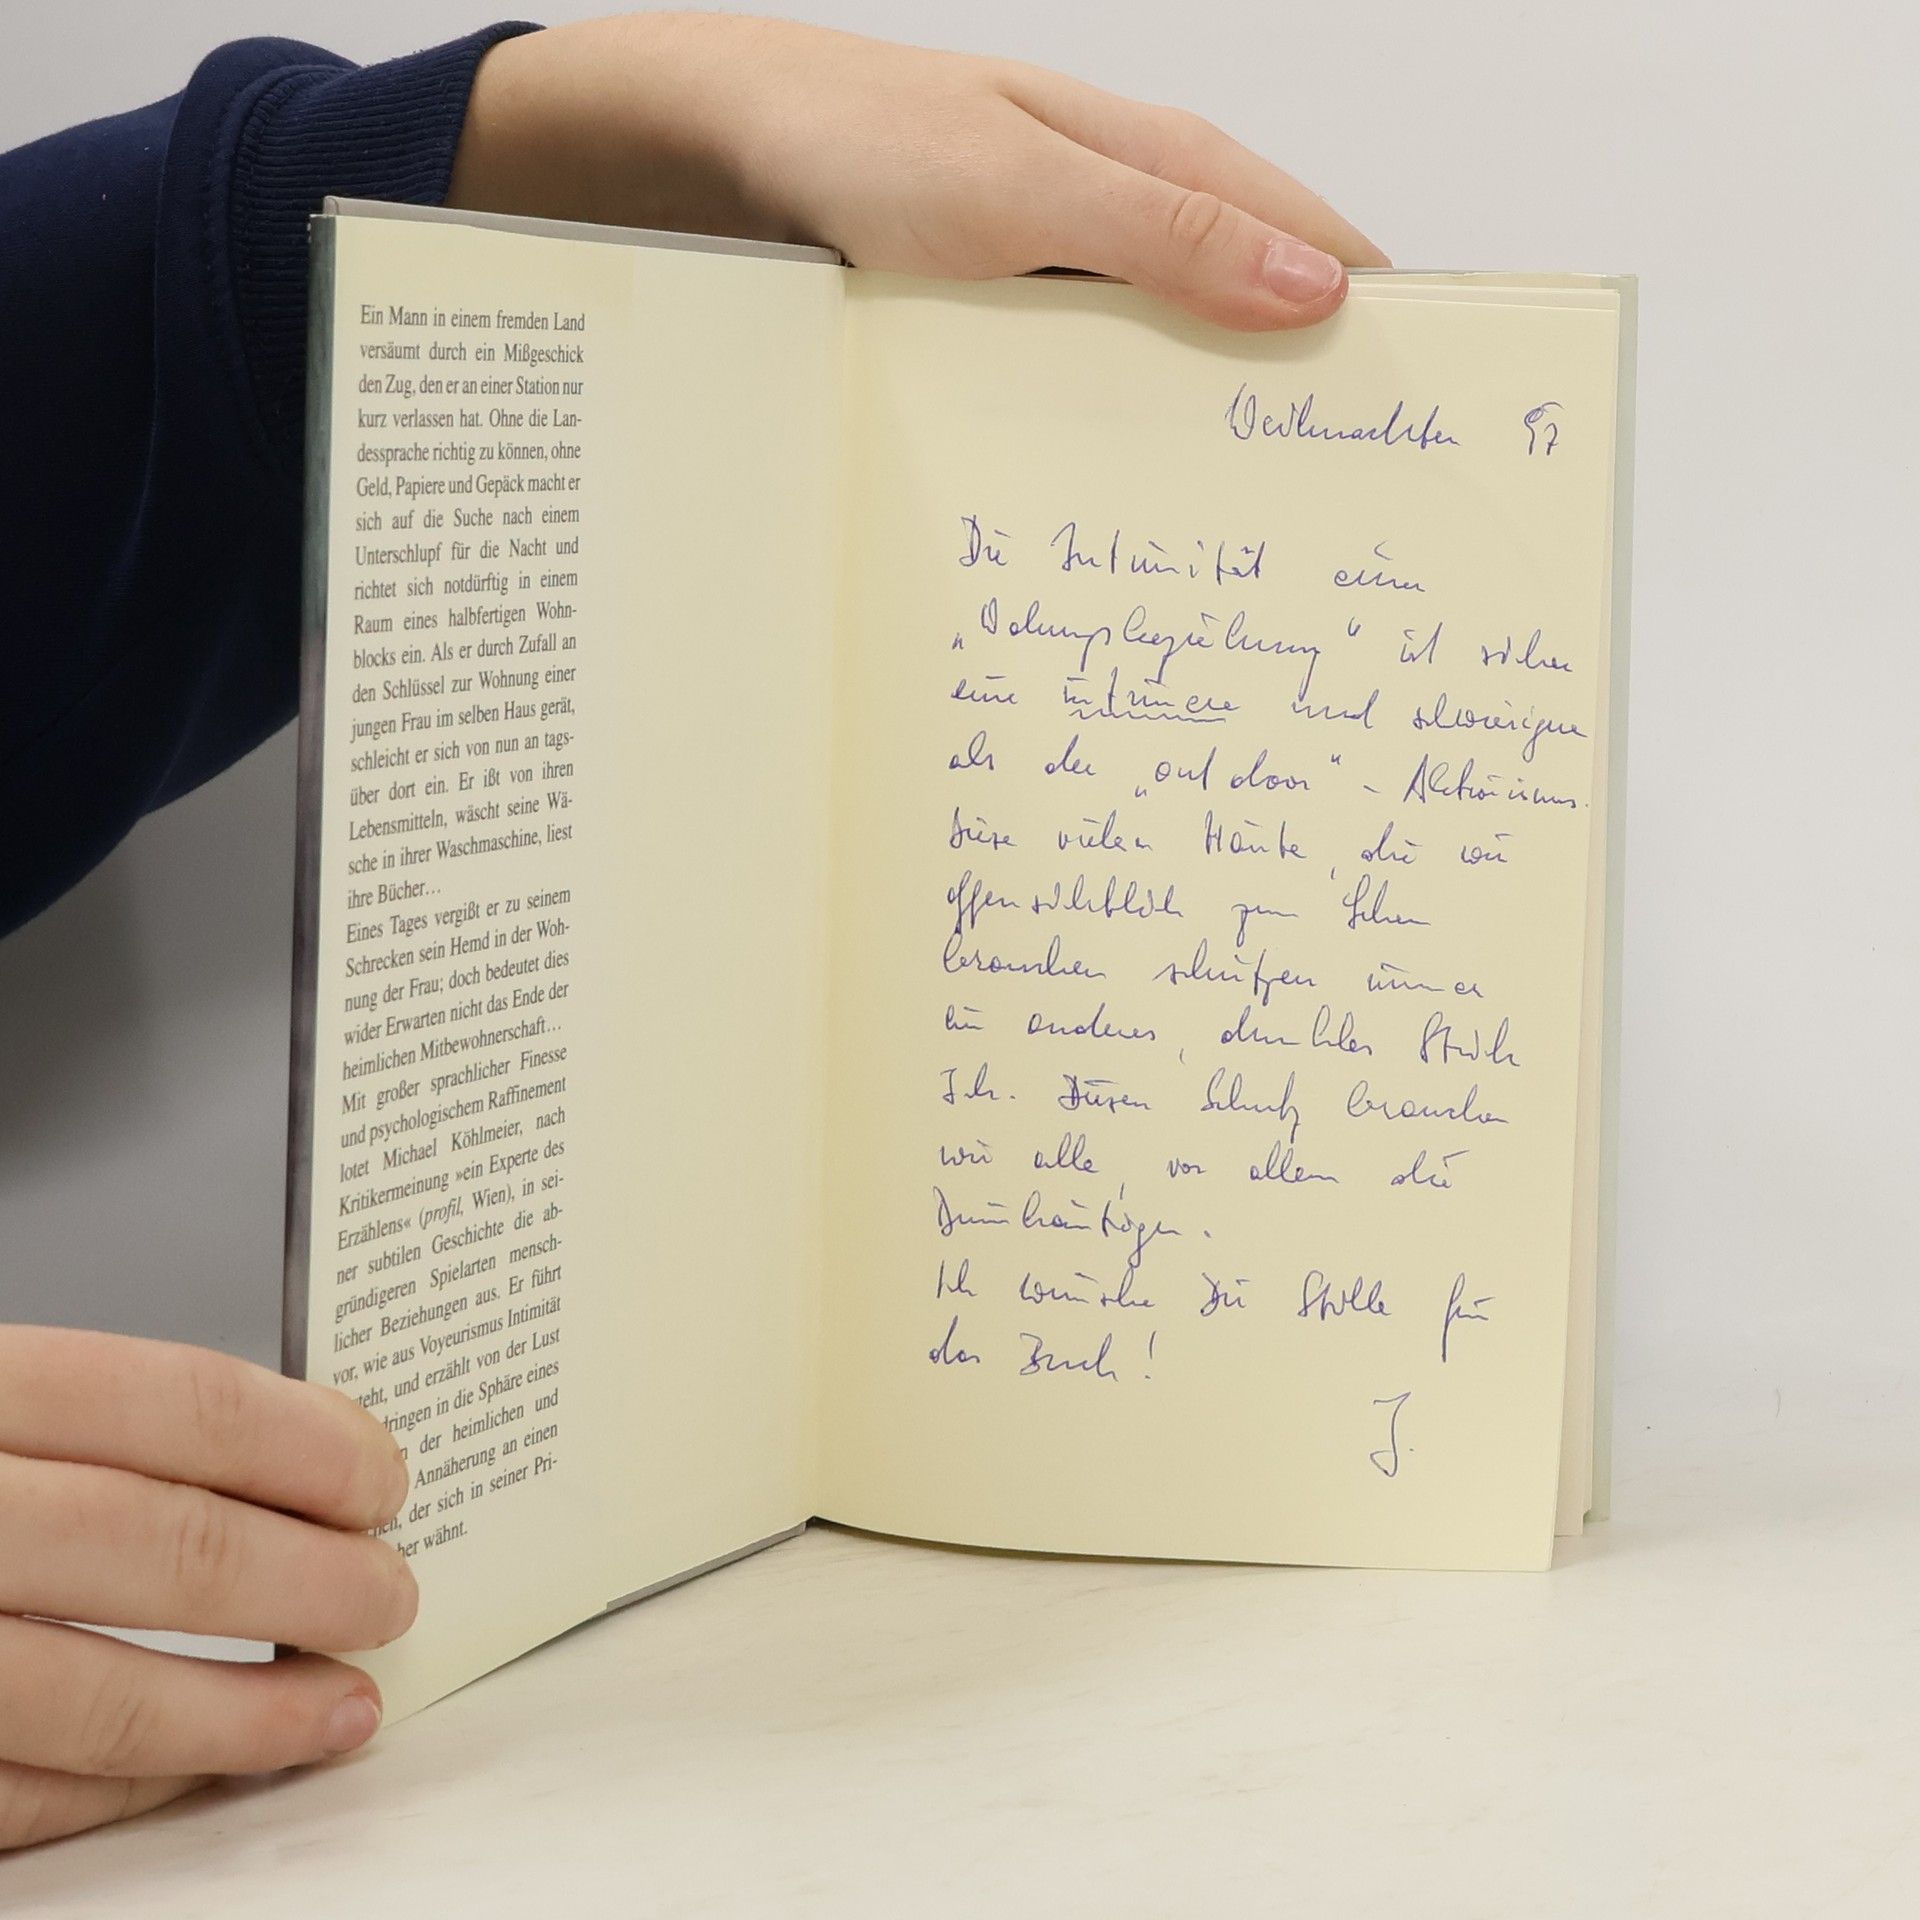 Ein Mann in einem fremden Land
versäumt durch ein Mißgeschick
den Zug, den er an einer Station nur
kurz verlassen hat. Ohne die Lan-
dessprache richtig zu können, ohne
Geld, Papiere und Gepäck macht er
sich auf die Suche nach einem
Unterschlupf für die Nacht und
richtet sich notdürftig in einem
Raum eines halbfertigen Wohn-
blocks ein. Als er durch Zufall an
den Schlüssel zur Wohnung einer
jungen Frau im selben Haus gerät,
schleicht er sich von nun an tags-
über dort ein. Er ißt von ihren
Lebensmitteln, wäscht seine Wä-
sche in ihrer Waschmaschine, liest
ihre Bücher...
Eines Tages vergißt er zu seinem
Schrecken sein Hemd in der Woh-
nung der Frau; doch bedeutet dies
wider Erwarten nicht das Ende der
heimlichen Mitbewohnerschaft...
Mit großer sprachlicher Finesse
und psychologischem Raffinement
lotet Michael Köhlmeier, nach
Kritikermeinung »ein Experte des
Erzählens« (profil, Wien), in sei-
ner subtilen Geschichte die ab-
gründigeren Spielarten mensch-
licher Beziehungen aus. Er führt
vor, wie aus Voyeurismus Intimität
teht, und erzählt von der Lust
dringen in die Sphäre eines
n der heimlichen und
Annäherung an einen
hen, der sich in seiner Pri-
her wähnt.
Weihnachten 97
Die Intimität einer
„Wohnungsbeziehung" ist sicher
eine intimere und schwierigere
als der „out door" - Aktivismus.
Diese vielen Häute, die wir
offensichtlich zum Leben
brauchen schützen immer
ein anderes, dunkles Stück
Ich. Diesen Schutz brauchen
wir alle, vor allem die
Dünnhäutigen.
Ich wünsche Dir Stille für
das Buch!
J.